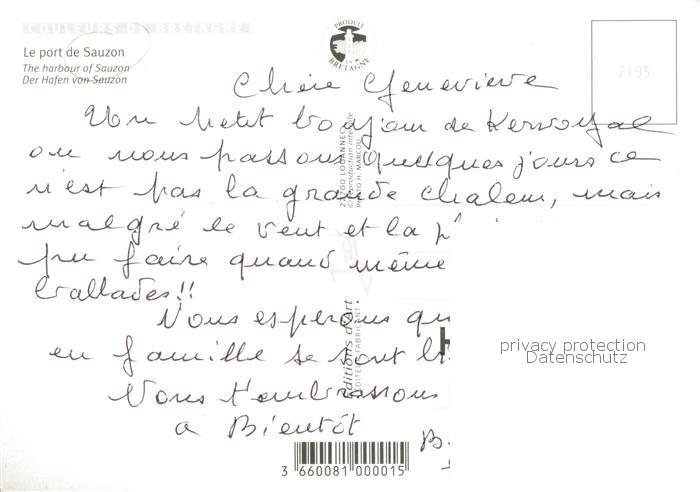 COULEURS DE BRETAGNE
Le port de Sauzon
The harbour of Sauzon
Der Hafen von Sauzon
PRODUIT
BRETAGNE
7195
Chère Geneviève
Un petit bonjour de Kervoyal
ou nous passons quelques jours ce
n'est pas la grande chaleur, mais
malgré le vent et la
pu faire quand même
ballades!!
Nous esperons qu
en famille se sont
Nous t'embrassons
a Bientôt
22700 LOUANNEC
Reproduction interdite
PHOTO H. MARCOU
Jack
Editions d'Art
EDITEUR FABRICANT
privacy protection
Datenschutz
3 660081 000015